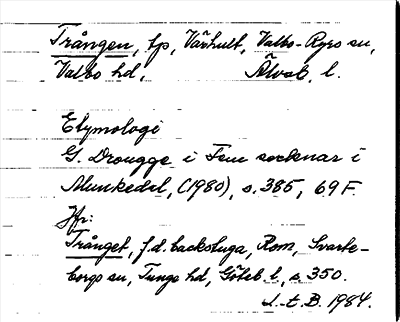 Trången, tp, Vårhult, Valbo-Ryrs sn,
Valbo hd, Älvsb. l.
Etymologi
G. Drougge i Fem socknar i
Munkedal, (1980), s. 385, 69 F.
Jfr:
Trånget, f.d. backstuga, Rom, Svarte-
borgs sn, Tunge hd, Göteb. l, s. 350.
S.-t. B. 1984.